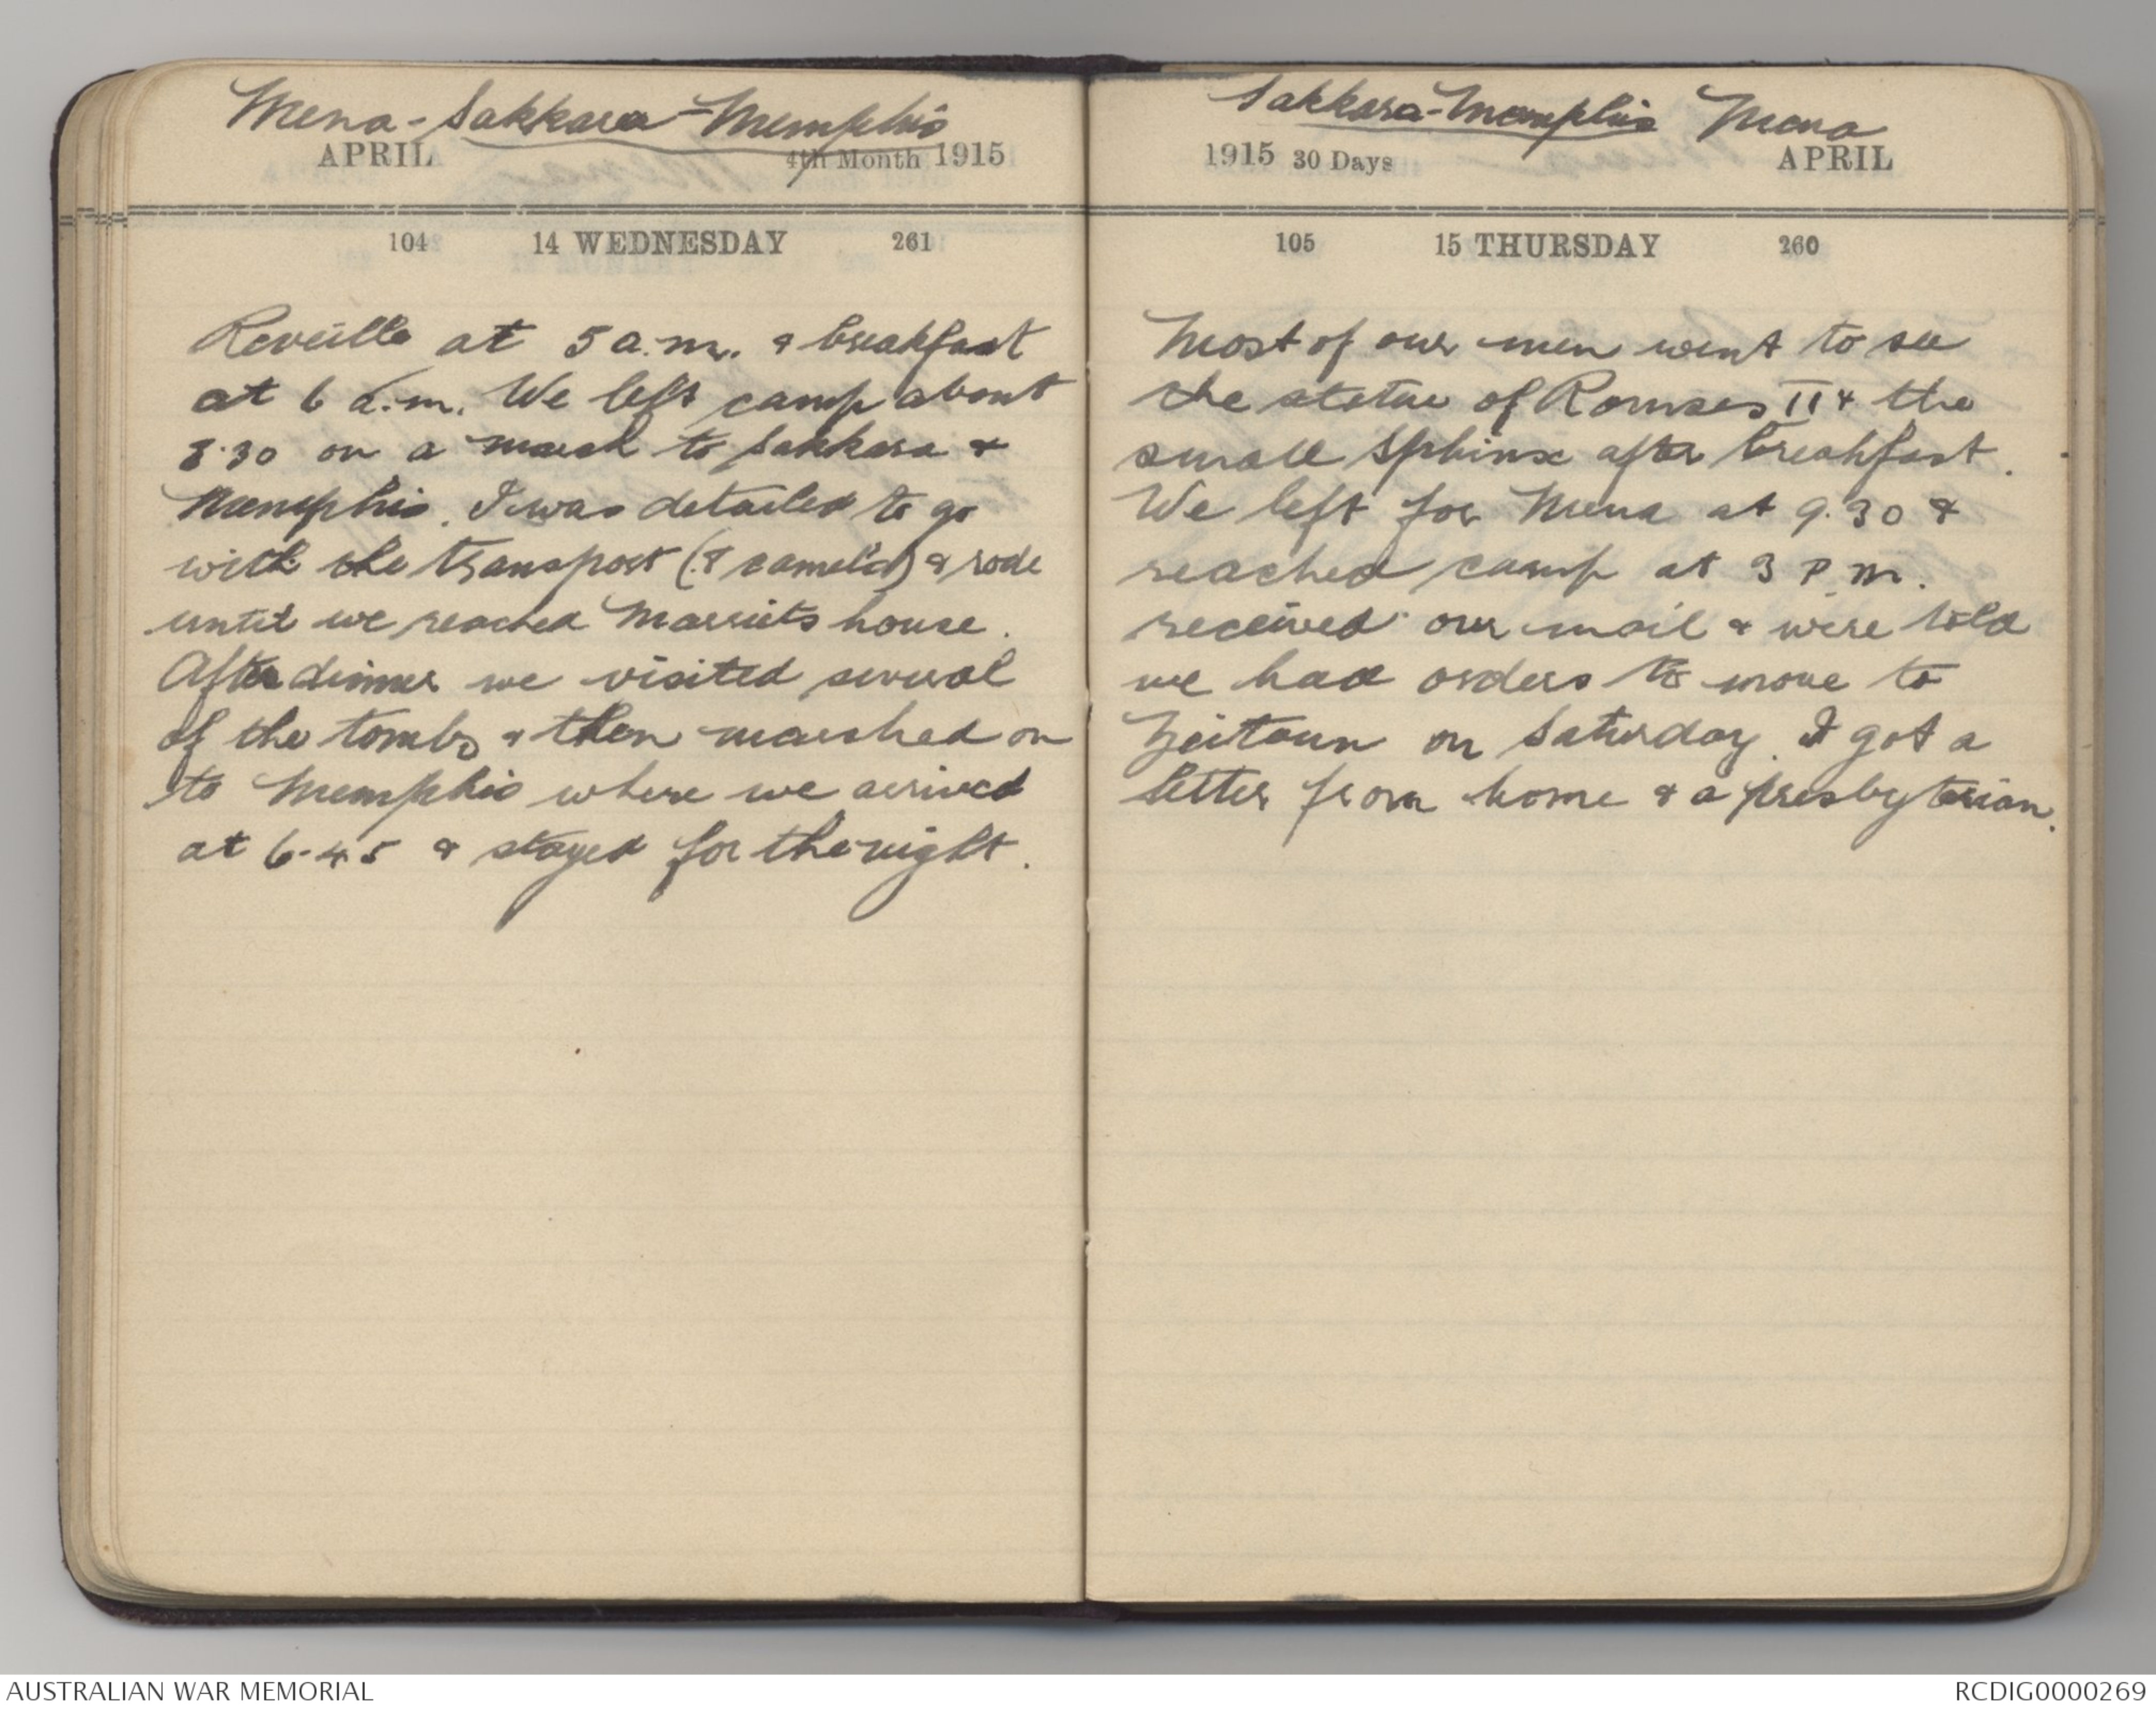 Mena - Sakkara - Memphis
APRIL 4th Month 1915
104 14 WEDNESDAY 261
Reveille at 5 a.m. & breakfast
at 6 a.m. We left camp about
8.30 on a march to Sakkara &
Memphis. I was detailed to go
with the transport (8 camels) & rode
until we reached Marriets house.
After dinner we visited several
of the tombs & then marched on
to Memphis where we arrived
at 6.45 & stayed for the night.
Sakkara - Memphis Mena
1915 30 Days APRIL
105 15 THURSDAY 260
Most of our men went to see
the statue of Ramses II & the
small Sphinx after breakfast.
We left for Mena at 9.30 &
reached camp at 3 P.m.
received our mail & were told
we had orders to move to
Zeitoun on Saturday. I got a
letter from home & a presbyterian.
AUSTRALIAN WAR MEMORIAL
RCDIG0000269